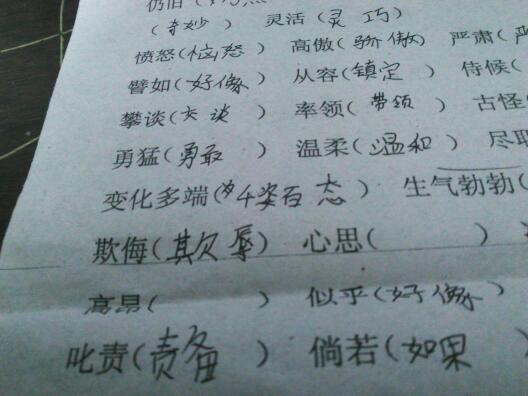 仍旧(
(奇妙) 灵活(灵巧)
愤怒(恼怒) 高傲(骄傲) 严肃(
譬如(好像) 从容(镇定) 侍候(
攀谈(交谈) 率领(带领) 古怪
勇猛(勇敢) 温柔(温和) 尽
变化多端(千姿百态) 生气勃勃(
欺侮(欺辱) 心思( )
高昂( ) 似乎(好像)
叱责(责备) 倘若(如果)